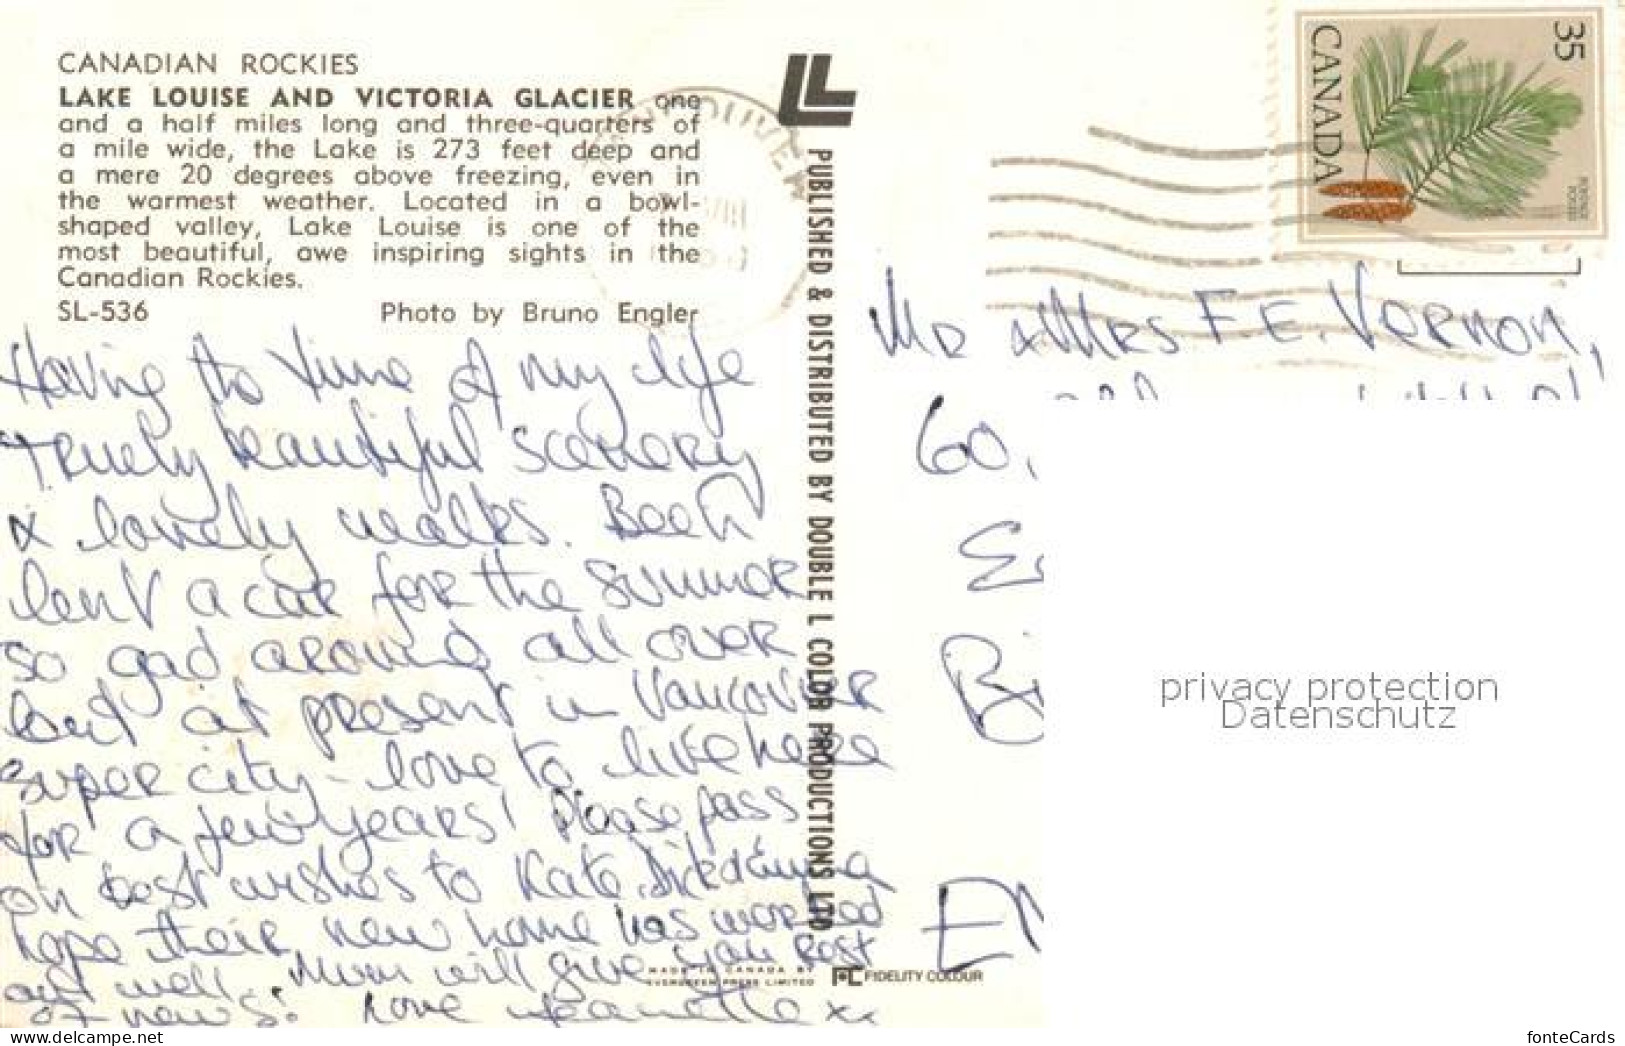 CANADIAN ROCKIES
LAKE LOUISE AND VICTORIA GLACIER one
and a half miles long and three-quarters of
a mile wide, the Lake is 273 feet deep and
a mere 20 degrees above freezing, even in
the warmest weather. Located in a bowl-
shaped valley, Lake Louise is one of the
most beautiful, awe inspiring sights in the
Canadian Rockies.
SL-536 Photo by Bruno Engler
Having the time of my life
truely beautiful scenery
& lovely walks. Been
lent a car for the summer
so gad around all over
but at present in Vancouver
super city - love to live here
for a few years! Please pass
on best wishes to Kate, Dick &
hope their new home has worked
out well. Mum will give you rest
of news! Love Jeanette xx
LL
PUBLISHED & DISTRIBUTED BY DOUBLE L COLOR PRODUCTIONS LTD.
MADE IN CANADA BY
EVERGREEN PRESS LIMITED
FIDELITY COLOUR
VANCOUVER
CANADA
35
Mr & Mrs F E. Vernon,
60,
privacy protection
Datenschutz
www.delcampe.net
fonteCards